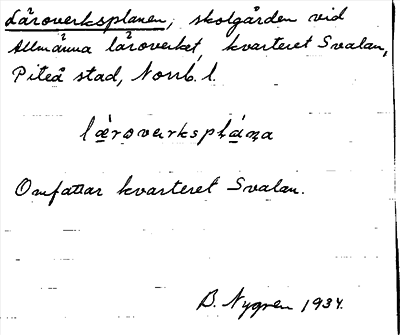 Läroverksplanen, skolgården vid
Allmänna läroverket, kvarteret Svalan,
Piteå stad, Norrb. l.
læ̀roverkspḷána
Omfattar kvarteret Svalan.
B. Nygren 1934.